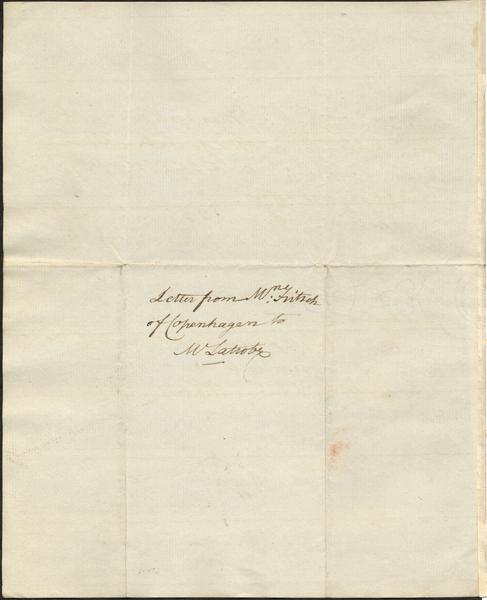 Letter from Mr. Fritsch
of Copenhagen to
Mr Latrobe